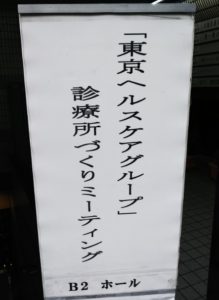 「東京ヘルスケアグループ」
診療所づくりミーティング
B2 ホール